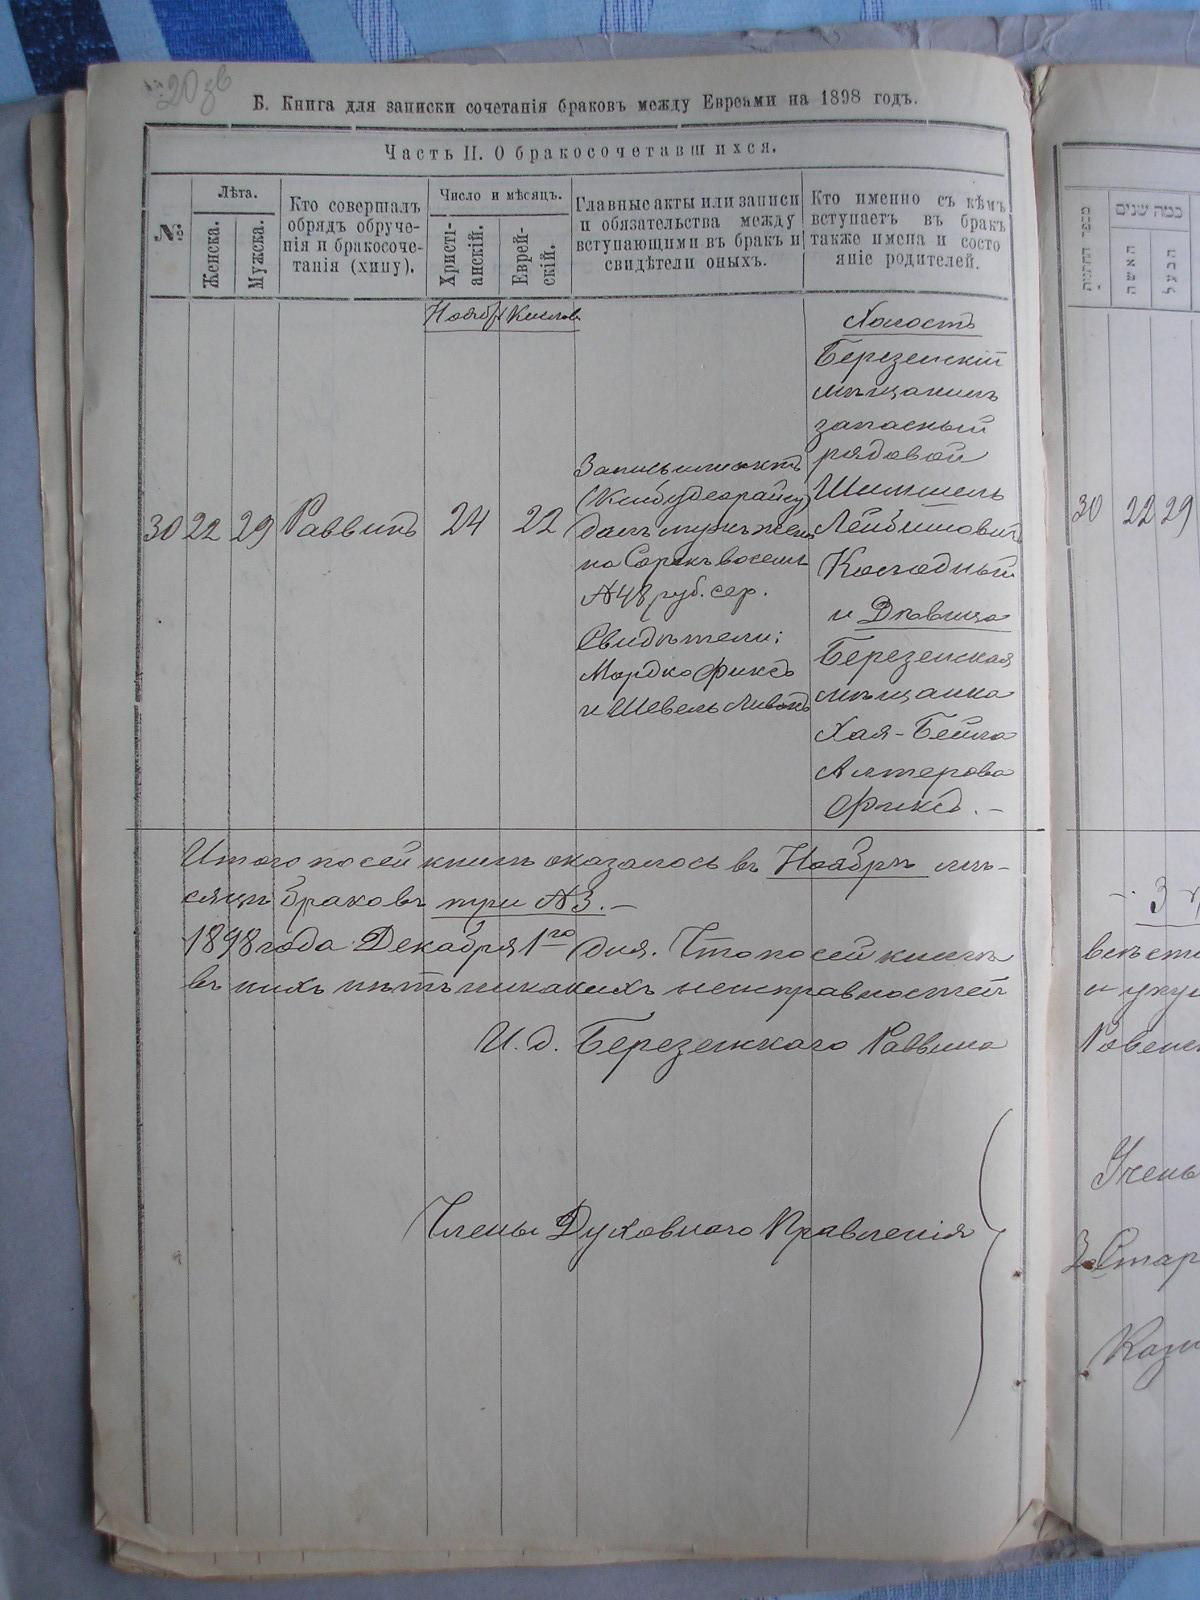 20 зв
Б. Книга для записки сочетанія браковъ между Евреами на 1898 годъ.
Часть II. О бракосочетавшихся.
№
Лѣта.
Женска.
Мужска.
Кто совершалъ
обрядъ обруче-
нія и бракосоче-
танія (хипу).
Число и мѣсяцъ.
Христі-
анскій.
Еврей-
скій.
Главные акты или записи
и обязательства между
вступающими въ бракъ и
свидѣтели оныхъ.
Кто именно съ кѣмъ
вступаетъ въ бракъ
также имена и состо
яніе родителей.
Ноябр Кислов
30 22 29 Раввинъ 24 22
Запись или актъ
далъ мужъ жен
на Сорокъ восемь
№ 48 руб. сер.
Свидѣтели:
Мордко Фиксъ
и Шевель
Холостъ
Березнскій
мѣщанинъ
запасный
рядовой
Шимшель
Лейбишович
Колодный
и Дѣвица
Березнская
мѣщанка
Хая-Бейла
Алтерова
Фиксъ. –
Итого по сей книгѣ оказалось въ Ноябрѣ мѣ-
сяцѣ браковъ три № 3. –
1898 года Декабря 1го дня. Что по сей книгѣ
въ нихъ нѣтъ никакихъ неисправностей
И. д. Березнскаго Раввина
Члены Духовнаго Правленія
כמה שנים
האשה
הבעל
30 22 29
3
Ровенс
Учень
Стар
Казн